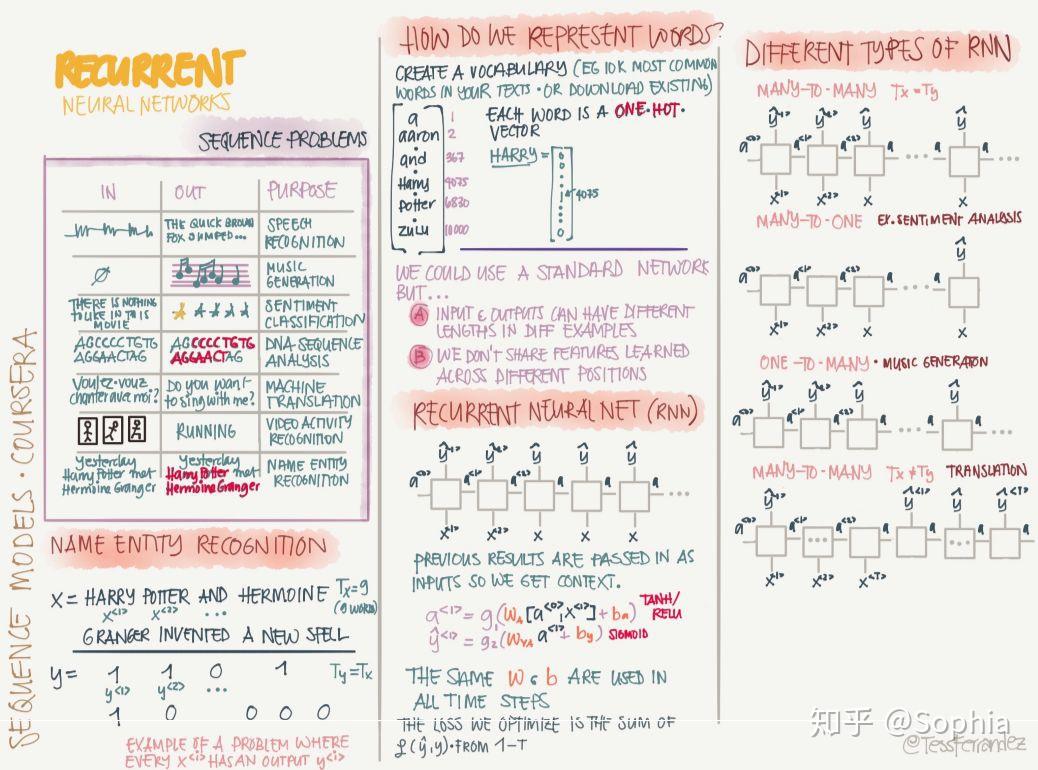 RECURRENT
NEURAL NETWORKS
SEQUENCE PROBLEMS
IN OUT PURPOSE
THE QUICK BROWN
FOX JUMPED...
SPEECH
RECOGNITION
∅
MUSIC
GENERATION
THERE IS NOTHING
TO LIKE IN THIS
MOVIE
SENTIMENT
CLASSIFICATION
AGCCCCTGTG
AGGAACTAG
AGCCCCTGTG
AGGAACTAG
DNA-SEQUENCE
ANALYSIS
Voulez-vouz
chanter avec moi?
Do you want
to sing with me?
MACHINE
TRANSLATION
RUNNING
VIDEO ACTIVITY
RECOGNITION
Yesterday
Harry Potter met
Hermoine Granger
Yesterday
Harry Potter met
Hermoine Granger
NAME ENTITY
RECOGNITION
SEQUENCE MODELS · COURSERA
NAME ENTITY RECOGNITION
X = HARRY POTTER AND HERMOINE Tx=9
x<1> x<2> ... (9 WORDS)
GRANGER INVENTED A NEW SPELL
y = 1 1 0 1 Ty=Tx
y<1> y<2> ...
1 0 0 0 0
EXAMPLE OF A PROBLEM WHERE
EVERY X<i> HAS AN OUTPUT y<i>
HOW DO WE REPRESENT WORDS?
CREATE A VOCABULARY (EG 10K MOST COMMON
WORDS IN YOUR TEXTS · OR DOWNLOAD EXISTING)
a 1
aaron 2
and 367
Harry 4075
Potter 6830
zulu 10000
EACH WORD IS A ONE·HOT·
VECTOR
HARRY =
0
0
1 4075
0
WE COULD USE A STANDARD NETWORK
BUT...
A INPUT & OUTPUTS CAN HAVE DIFFERENT
LENGTHS IN DIFF EXAMPLES
B WE DON'T SHARE FEATURES LEARNED
ACROSS DIFFERENT POSITIONS
RECURRENT NEURAL NET (RNN)
ŷ<1> ŷ<2> ŷ ŷ ŷ
a<0> a<1> a<2> a a ...
x<1> x<2> x x x
PREVIOUS RESULTS ARE PASSED IN AS
INPUTS SO WE GET CONTEXT.
a<1> = g1(WA[a<0>,x<1>] + ba) TANH/
RELU
ŷ<1> = g2(WYA a<1> + by) SIGMOID
THE SAME W & b ARE USED IN
ALL TIME STEPS
THE LOSS WE OPTIMIZE IS THE SUM OF
ℒ(ŷ,y) · FROM 1-T
DIFFERENT TYPES OF RNN
MANY-TO-MANY Tx=Ty
ŷ<1> ŷ<2> ŷ ŷ
a<0> a<1> a<2> a ... a ...
x<1> x<2> x x
MANY-TO-ONE EX. SENTIMENT ANALYSIS
ŷ
a<0> a<1> a<2> a ...
x<1> x<2> x x
ONE-TO-MANY · MUSIC GENERATION
ŷ<1> ŷ<2> ŷ ŷ
a<0> a<1> a<2> a ... a ...
MANY-TO-MANY Tx≠Ty TRANSLATION
ŷ<1> ŷ ŷ<T>
a<0> a<1> ... a<2> a a ... a
x<1> x<2> x<T>
知乎 @Sophia
@TessFerrandez